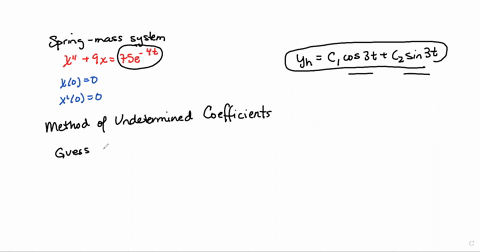 Spring-mass system
x'' + 9x = 75e^-4t
x(0) = 0
x'(0) = 0
y_h = C_1 cos 3t + C_2 sin 3t
Method of Undetermined Coefficients
Guess